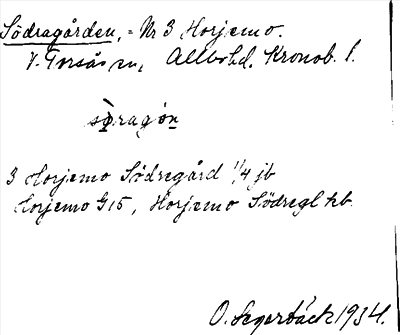 Södragården, = Nr 3 Horjemo.
V. Torsås sn, Allbo hd. Kronob. l.
södragón
3 Horjemo Södregård 1/4 jb
Horjemo G15, Horjemo Södregl kb.
O. Segerbäck 1934.